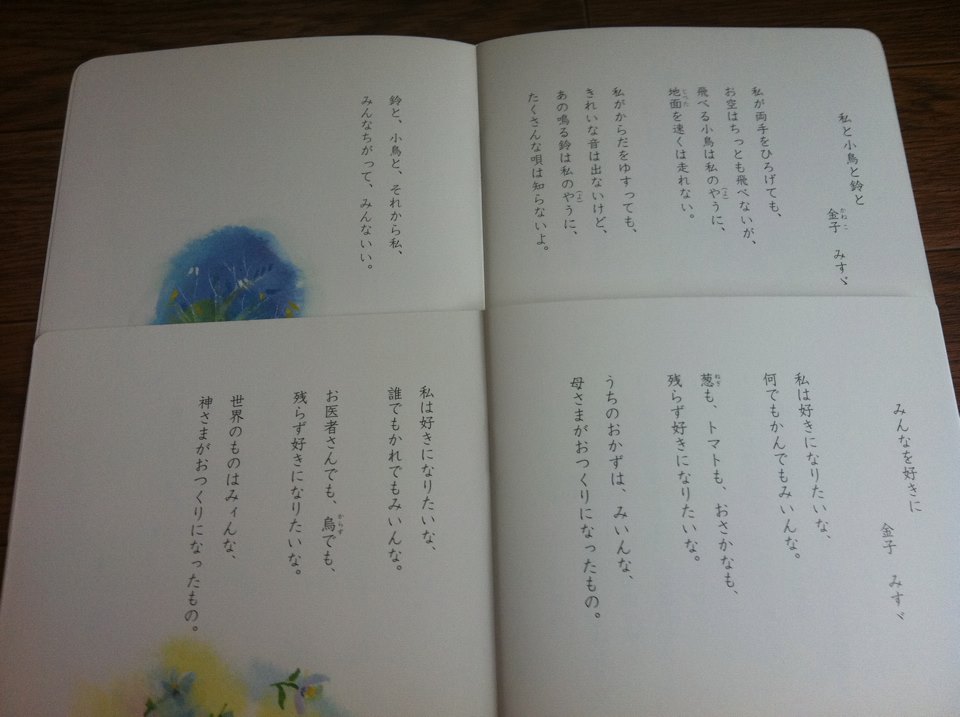 私と小鳥と鈴と
金子 みすゞ
かねこ
私が両手をひろげても、
お空はちっとも飛べないが、
飛べる小鳥は私のやうに、
（よ）
地面を速くは走れない。
じべた
私がからだをゆすっても、
きれいな音は出ないけど、
あの鳴る鈴は私のやうに、
（よ）
たくさんな唄は知らないよ。
鈴と、小鳥と、それから私、
みんなちがって、みんないい。
みんなを好きに
金子 みすゞ
私は好きになりたいな、
何でもかんでもみいんな。
葱も、トマトも、おさかなも、
ねぎ
残らず好きになりたいな。
うちのおかずは、みいんな、
母さまがおつくりになったもの。
私は好きになりたいな、
誰でもかれでもみいんな。
お医者さんでも、烏でも、
からす
残らず好きになりたいな。
世界のものはみィんな、
神さまがおつくりになったもの。